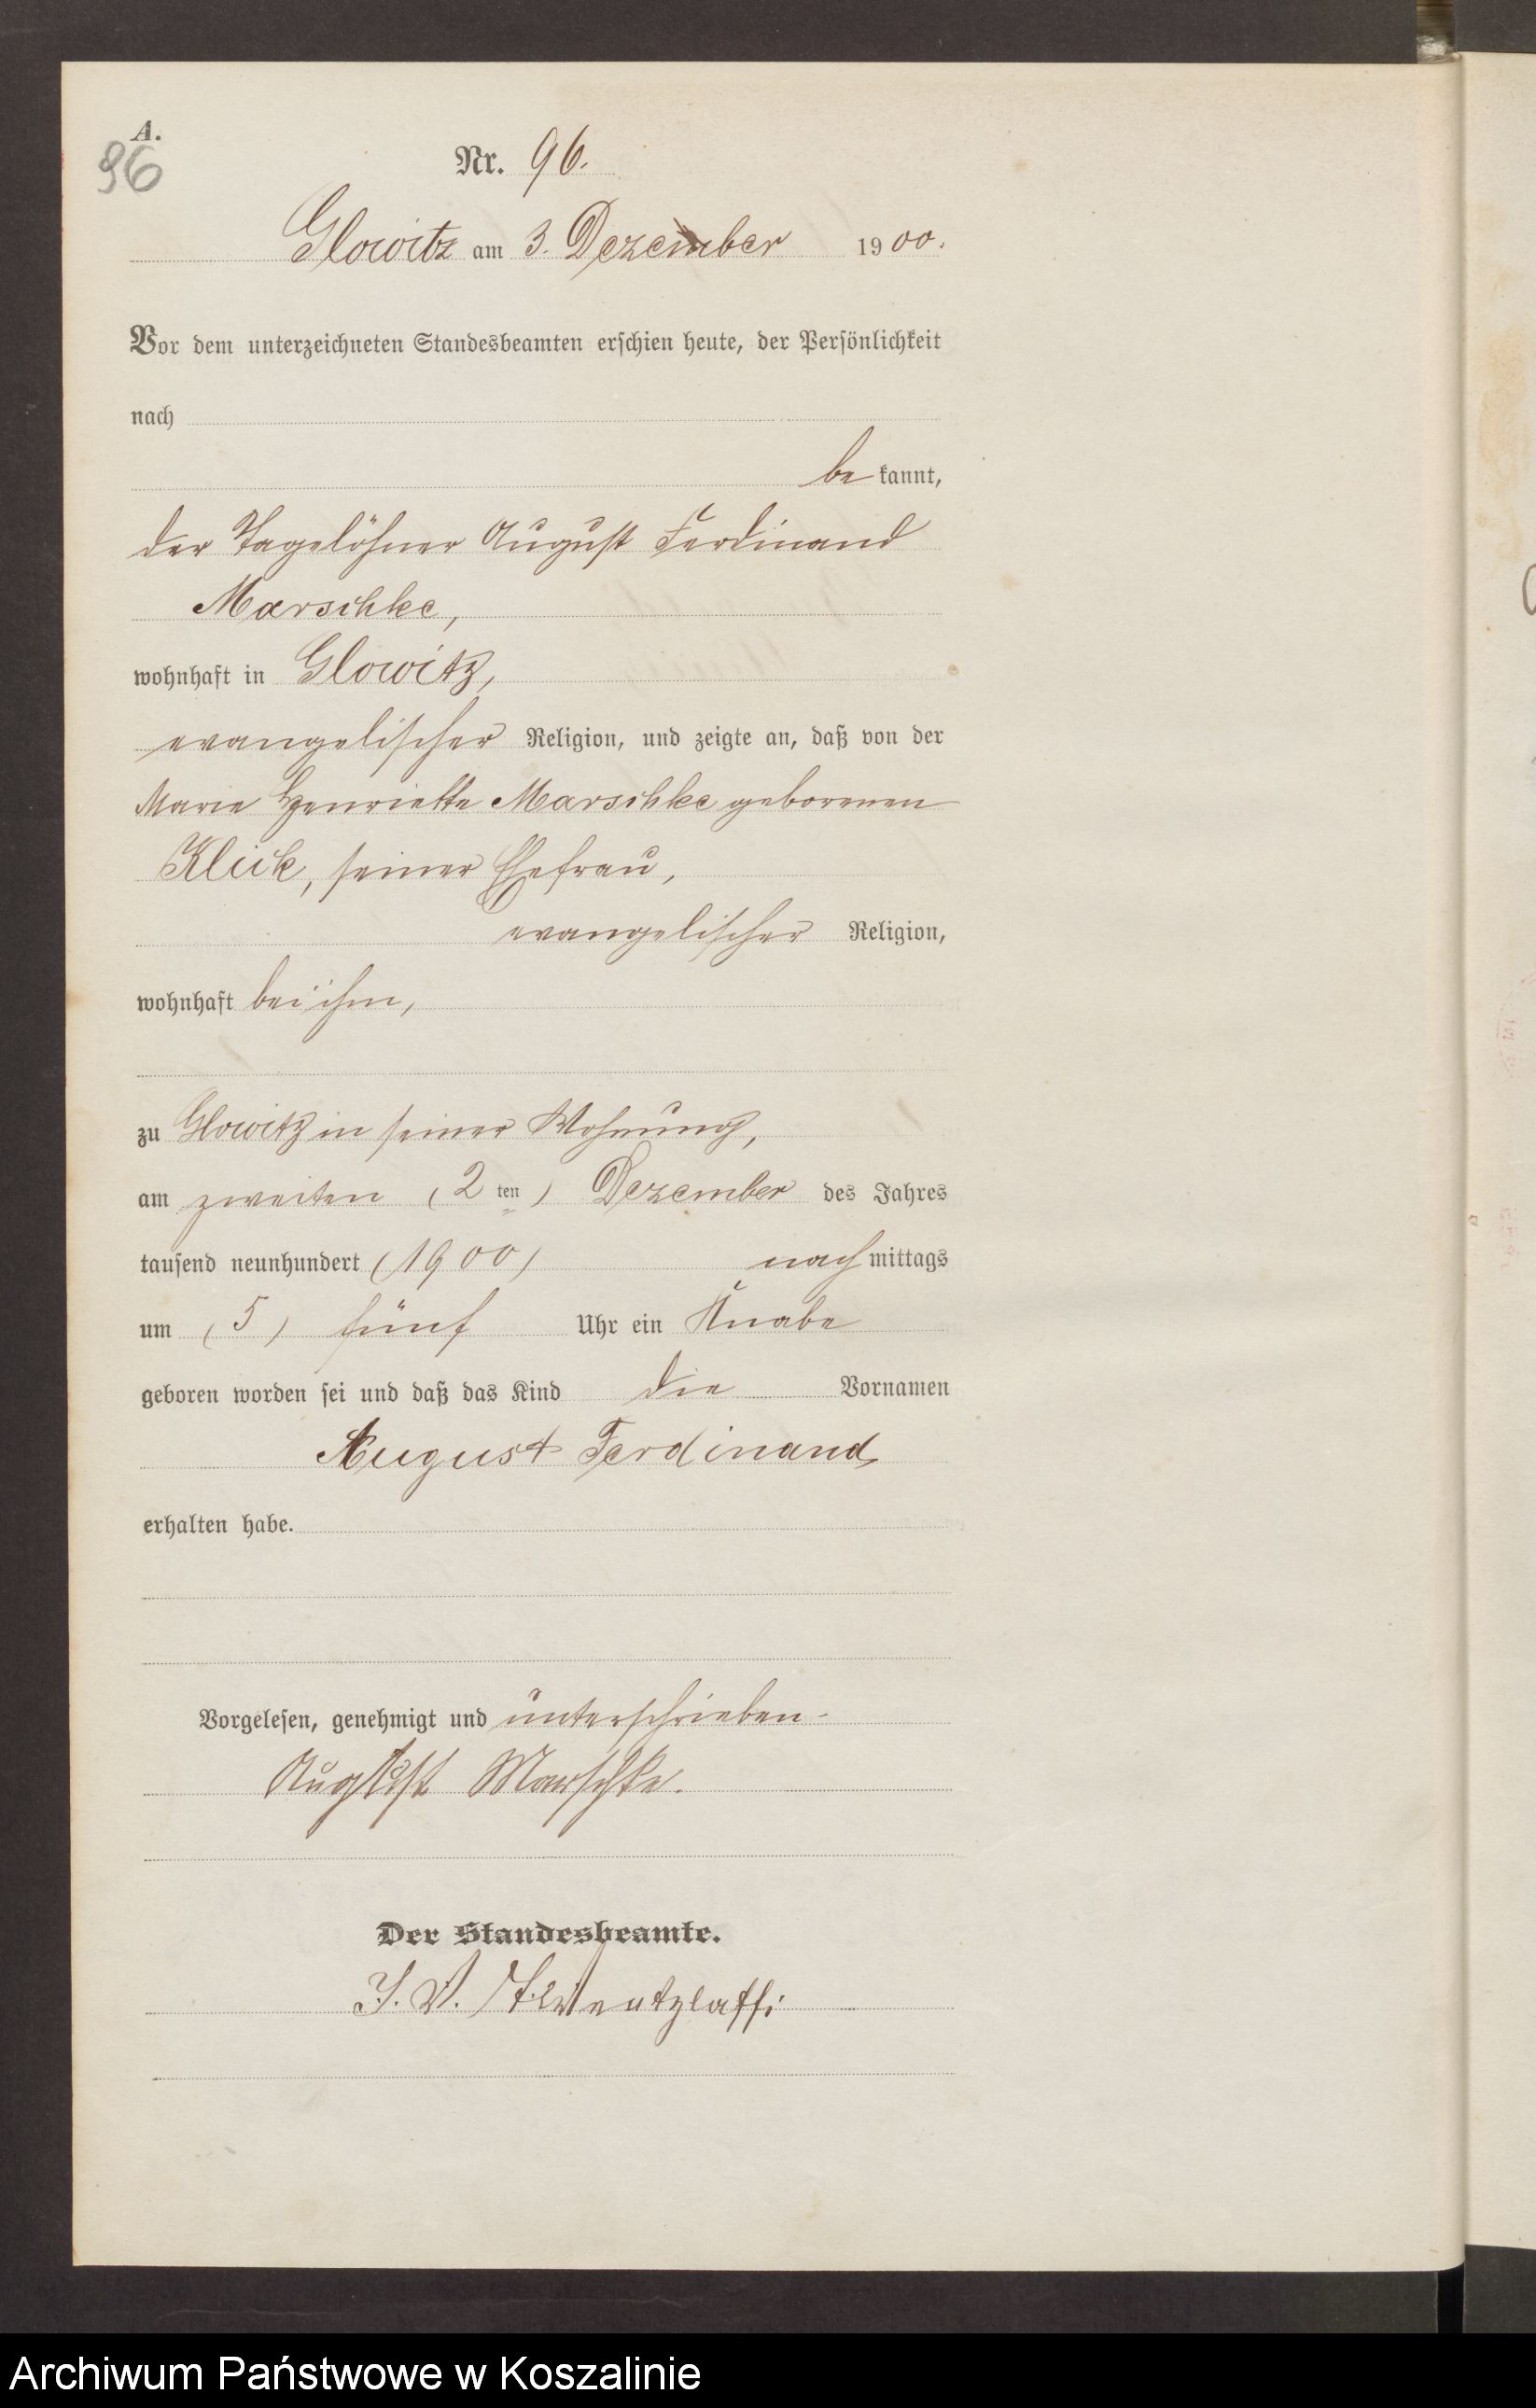 A.
96
Nr. 96.
Glowitz am 3. Dezember 1900.
Vor dem unterzeichneten Standesbeamten erschien heute, der Persönlichkeit
nach
be kannt,
der Tagelöhner August Ferdinand
Marschke,
wohnhaft in Glowitz,
evangelischer Religion, und zeigte an, daß von der
Marie Henriette Marschke geborenen
Klick, seiner Ehefrau,
evangelischer Religion,
wohnhaft bei ihm,
zu Glowitz in seiner Wohnung,
am zweiten (2 ten) Dezember des Jahres
tausend neunhundert (1900) nach mittags
um (5) fünf Uhr ein Knabe
geboren worden sei und daß das Kind die Vornamen
August Ferdinand
erhalten habe.
Vorgelesen, genehmigt und unterschrieben.
August Marschke.
Der Standesbeamte.
J. V. Wentzlaff
Archiwum Państwowe w Koszalinie